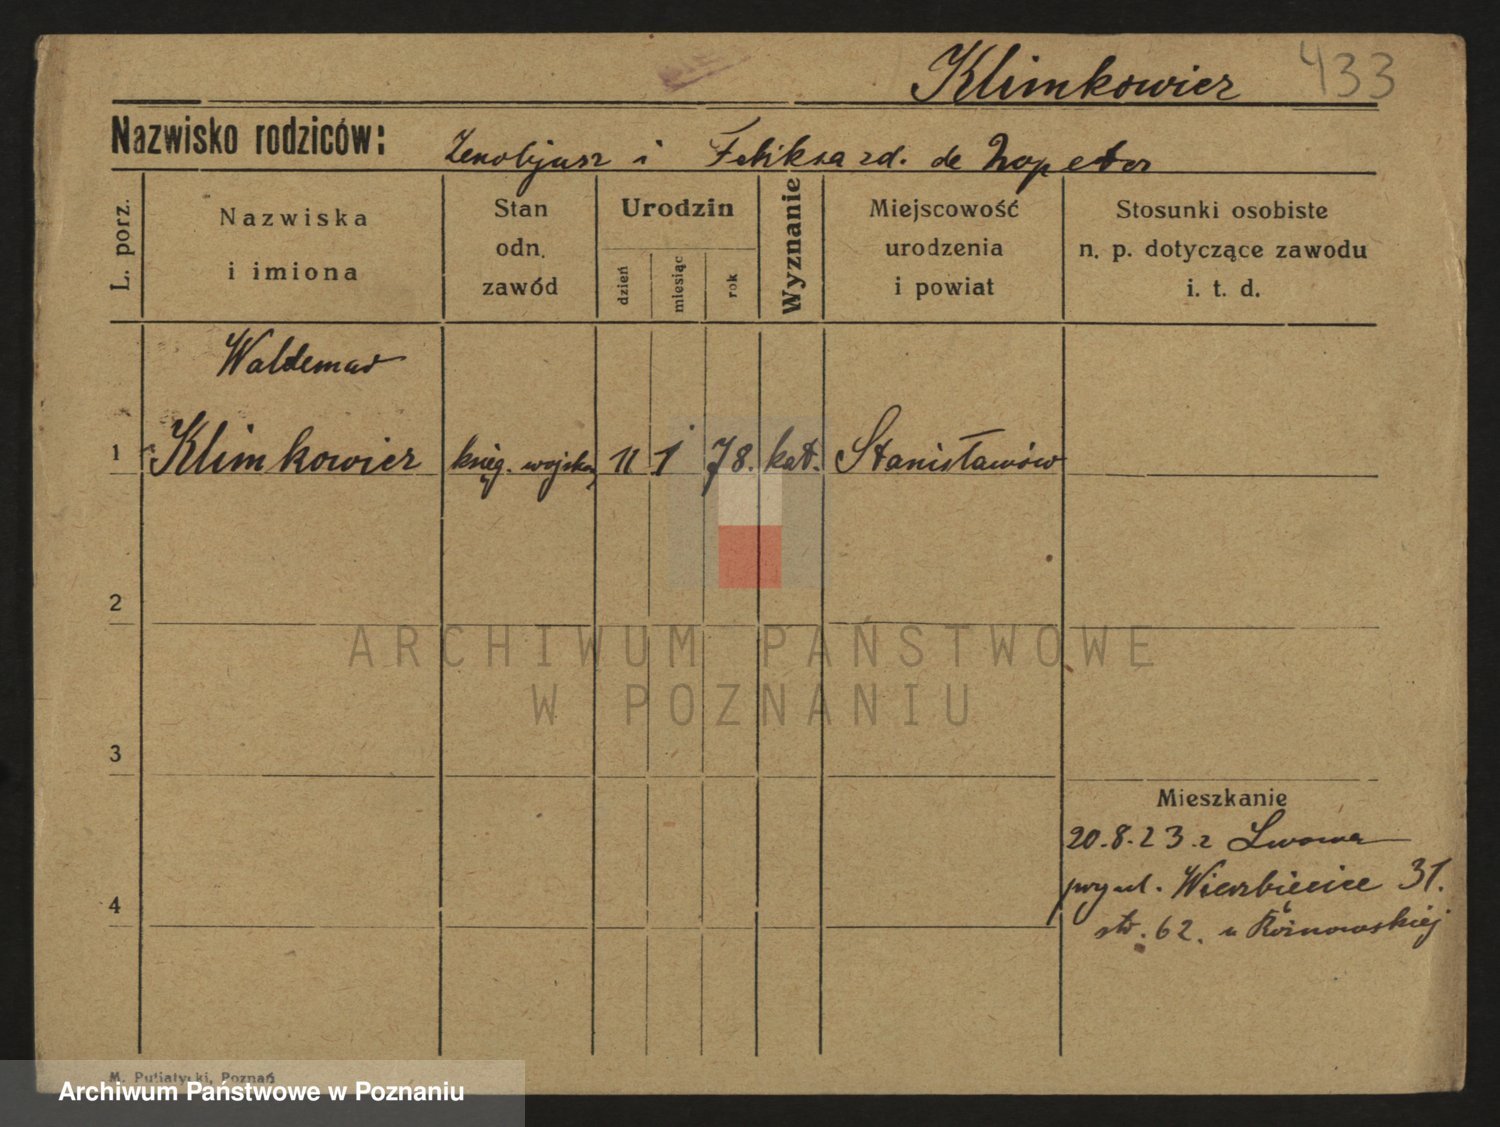 Klimkowicz 433
Nazwisko rodziców: Zenobjusz i Feliksa zd. de
L. porz.
Nazwiska
i imiona
Stan
odn.
zawód
Urodzin
dzień
miesiąc
rok
Wyznanie
Miejscowość
urodzenia
i powiat
Stosunki osobiste
n. p. dotyczące zawodu
i. t. d.
Waldemar
1 Klimkowicz księg. wojsk. 11 1 78. kat. Stanisławów
2
ARCHIWUM PAŃSTWOWE
W POZNANIU
3
Mieszkanie
20.8.23 z Lwowa
przy ul. Wierzbiecice 31.
4
str. 62. u Rożnowskiej
M. Putiatycki, Poznań
Archiwum Państwowe w Poznaniu